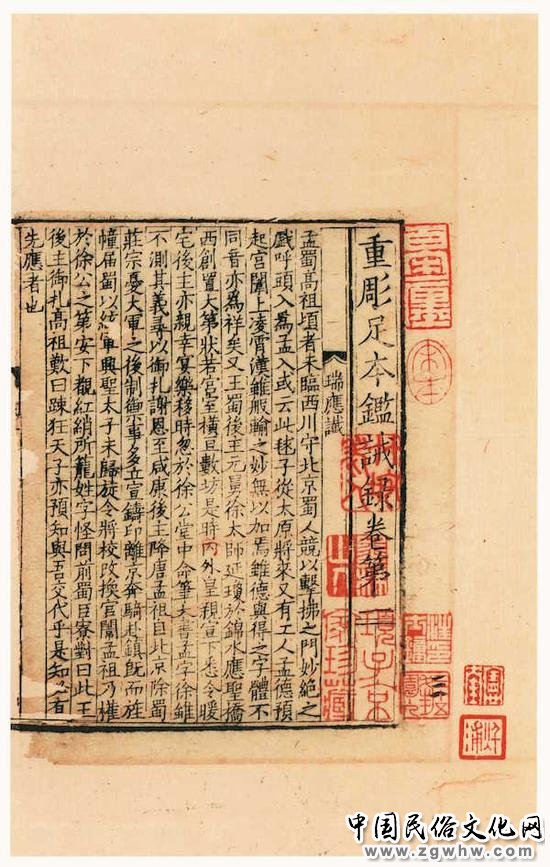 重彫足本鑑誡録卷第一
瑞應讖
孟蜀高祖頃者未臨西川守北京蜀人競以擊拂之門妙絶之
戲呼頭入爲孟入或云此毬子從太原將来又有工人孟德預
起宮闕上凌霄漢雖般輸之妙無以加焉雖德與得之字體不
同音亦爲祥矣又王蜀後主元舅徐太師延瓊於錦水應聖橋
西創置大第狀若宮室横亘數坊是時内外皇親宣下悉令暖
宅後主亦親幸宴樂移時忽於徐公堂中命筆大書孟字徐雖
不測其義尋以御札謝恩至咸康後主降唐孟祖自北京除蜀
莊宗憂大軍之後制御事多立宣鑄印離京奔騎赴鎮旣而旌
幢屆蜀以統軍興聖太子未歸旋令將校改換宮闈孟祖乃權
於徐公之第安下觀紅綃所籠姓字怪問前蜀臣寮對曰此王
後主御札高祖歎曰踈狂天子亦預知與吾交代乎是知必有
先應者也
中国民俗文化网
www.zgwhw.com